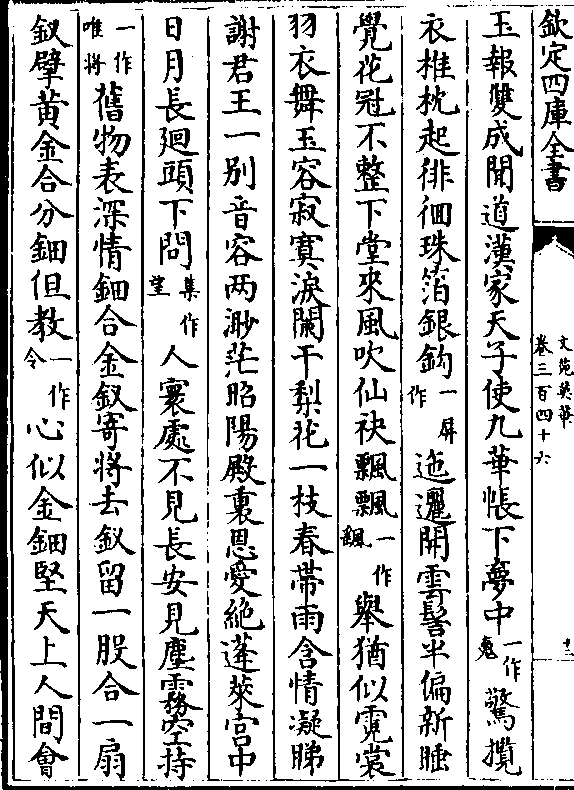 欽定四庫全書
文苑英華
卷三百四十六
十三
玉報雙成聞道漢家天子使九華帳下夢中一作魂驚攬
衣推枕起徘徊珠箔銀鈎一作屏迤邐開雲髻半偏新睡
覺花冠不整下堂來風吹仙袂飄飄一作飖舉猶似霓裳
羽衣舞玉容寂寞淚闌干梨花一枝春帶雨含情凝睇
謝君王一別音容两渺茫昭陽殿裏恩愛絶蓬萊宫中
日月長廻頭下問集作望人寰處不見長安見塵霧空持
一作唯將舊物表深情鈿合金釵寄將去釵留一股合一扇
釵擘黄金合分鈿但教一作令心似金鈿堅天上人間會